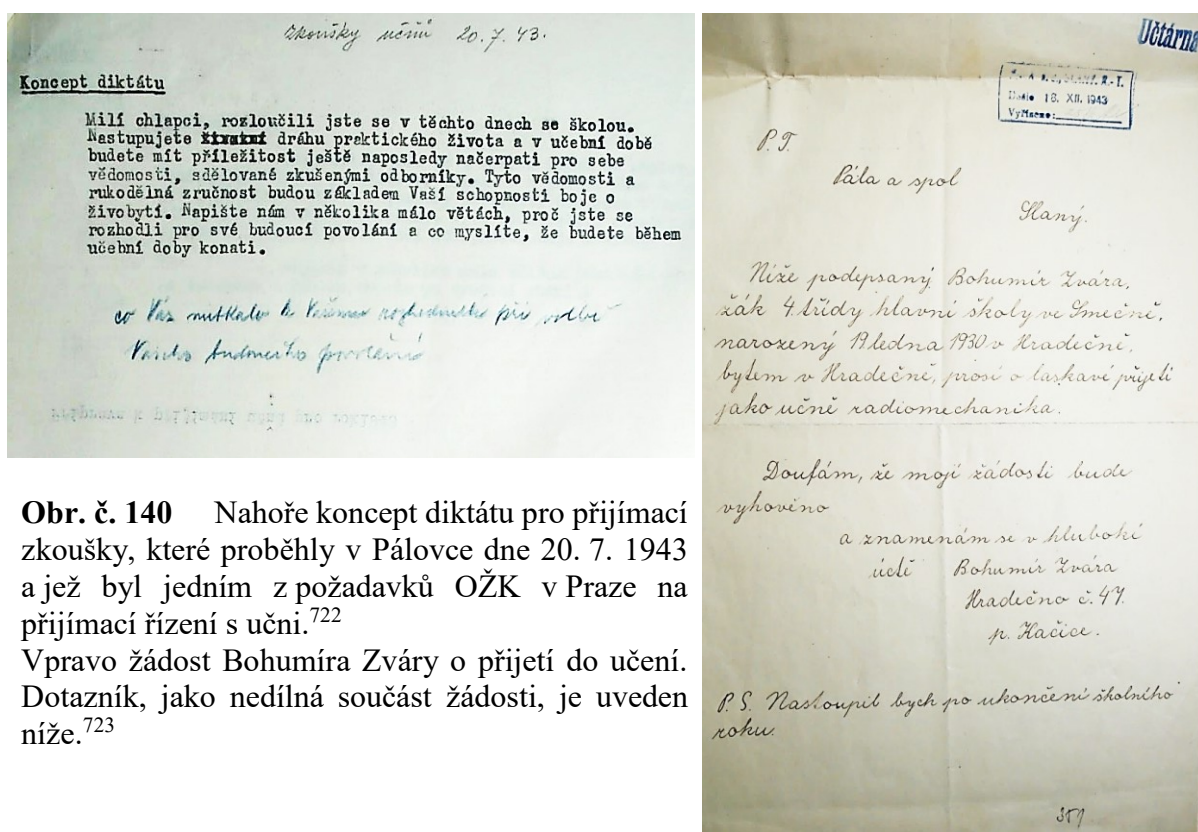 Zkoušky učňů 20.7.43.
Koncept diktátu
Milí chlapci, rozloučili jste se v těchto dnech se školou.
Nastupujete životní dráhu praktického života a v učební době
budete mít příležitost ještě naposledy načerpati pro sebe
vědomosti, sdělované zkušenými odborníky. Tyto vědomosti a
rukodělná zručnost budou základem Vaší schopnosti boje o
živobytí. Napište nám v několika málo větách, proč jste se
rozhodli pro své budoucí povolání a co myslíte, že budete během
učební doby konati.
co Vás nutkalo k Vašemu rozhodnutí při volbě
Vašeho budoucího povolání
Obr. č. 140 Nahoře koncept diktátu pro přijímací
zkoušky, které proběhly v Pálovce dne 20. 7. 1943
a jež byl jedním z požadavků OŽK v Praze na
přijímací řízení s učni.722
Vpravo žádost Bohumíra Zváry o přijetí do učení.
Dotazník, jako nedílná součást žádosti, je uveden
níže.723
Účtárna
Došlo 18. XII. 1943
Vyřízeno:
P. T.
Pála a spol
Slaný.
Níže podepsaný Bohumír Zvára,
žák 4. třídy hlavní školy ve Smečně,
narozený 19 ledna 1930 v Hradečně,
bytem v Hradečně, prosí o laskavé přijetí
jako učně radiomechanika.
Doufám, že mojí žádosti bude
vyhověno
a znamenám se v hluboké
úctě Bohumír Zvára
Hradečno č. 47.
p. Kačice.
P. S. Nastoupil bych po ukončení školního
roku.